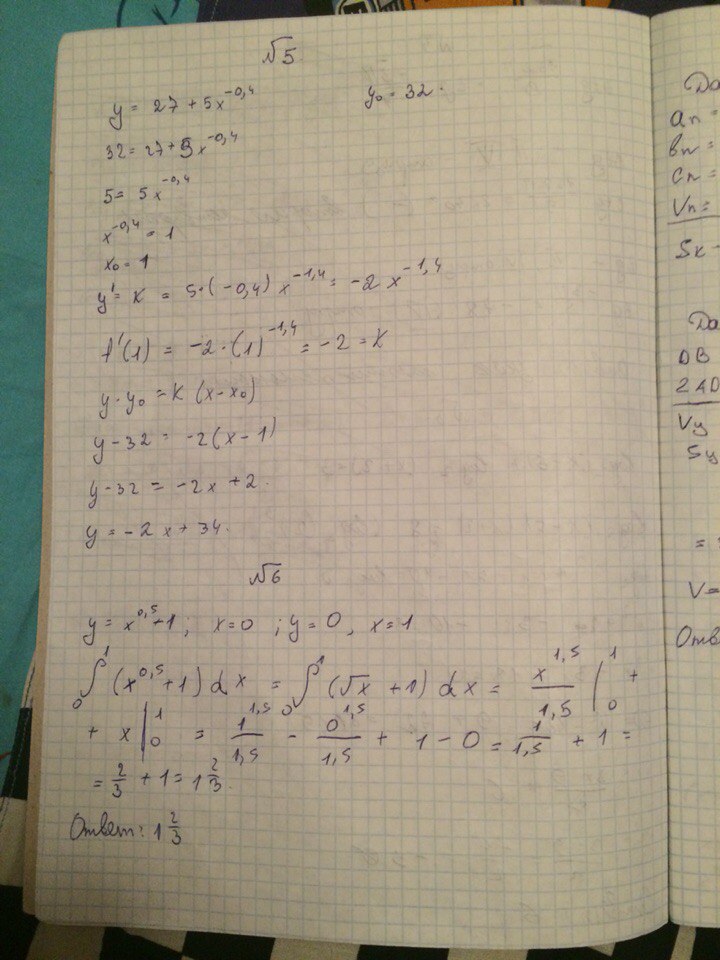 №5
y = 27 + 5x^{-0,4}    y₀ = 32.
32 = 27 + 5x^{-0,4}
5 = 5x^{-0,4}
x^{-0,4} = 1
x₀ = 1
y' = K = 5·(-0,4) x^{-1,4} = -2x^{-1,4}
f'(1) = -2·(1)^{-1,4} = -2 = K
y-y₀ = K (x-x₀)
y-32 = -2(x-1)
y-32 = -2x+2.
y = -2x+34.
№6
y = x^{0,5}+1; x=0 ; y=0, x=1
∫₀¹ (x^{0,5}+1) dx = ∫₀¹ (√x +1) dx = x^{1,5}/1,5 |₀¹ +
+ x |₀¹ = 1^{1,5}/1,5 - 0^{1,5}/1,5 + 1 - 0 = 1/1,5 + 1 =
= 2/3 + 1 = 1 2/3.
Ответ: 1 2/3
Да
an =
bn =
cn =
Vn =
Sx -
Да
DB
2AD
Vy
Sy
=
V=
Отв